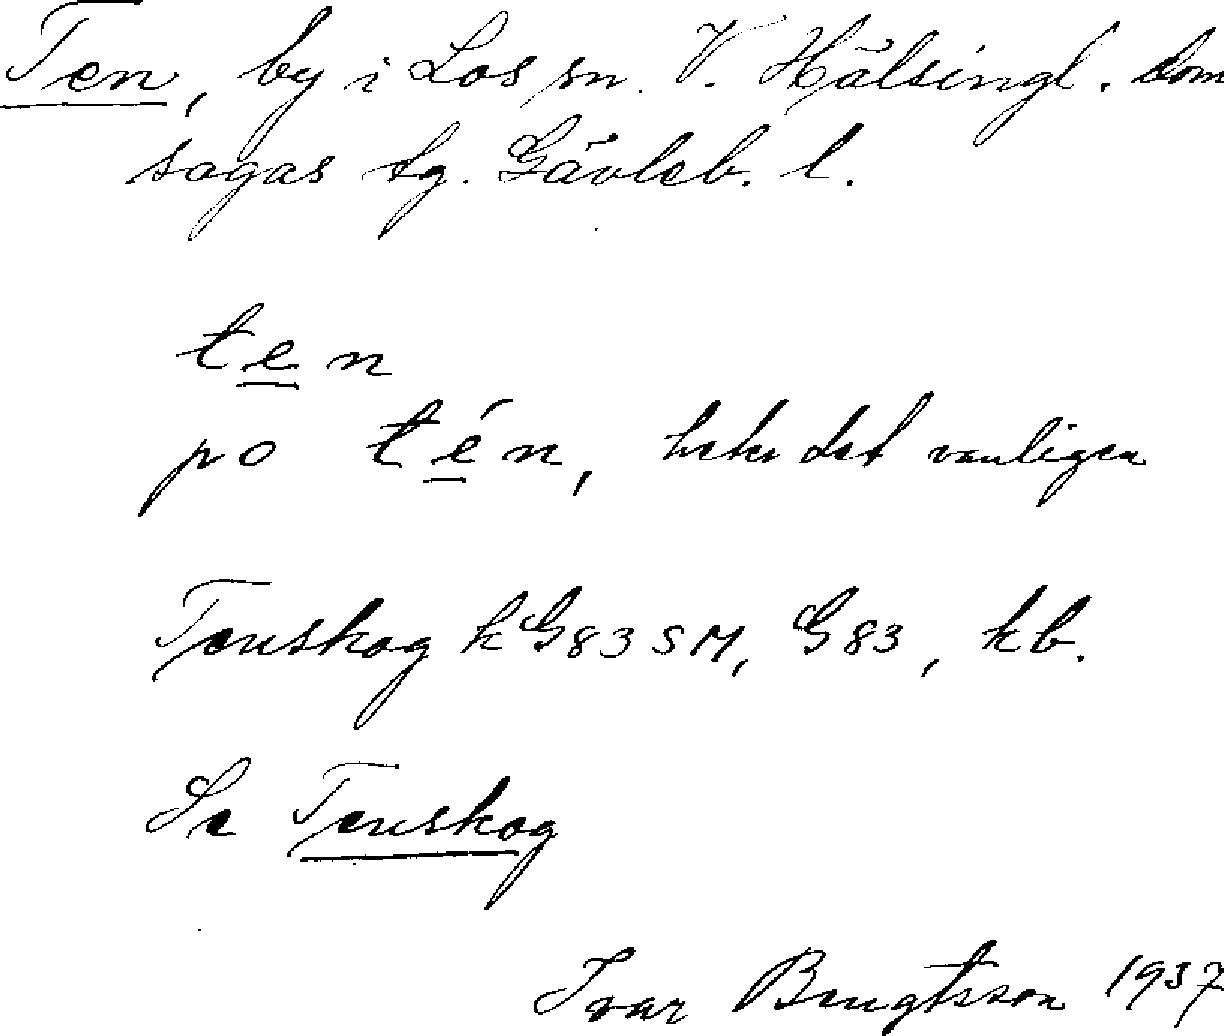 Ten, by i Los sn. V. Hälsingl. dom
sagas tg. Gävleb. l.
ten
po tén, heter det vanligen
Tenskog kG83SM, G83, kb.
Se Tenskog
Ivar Bengtsson 1937